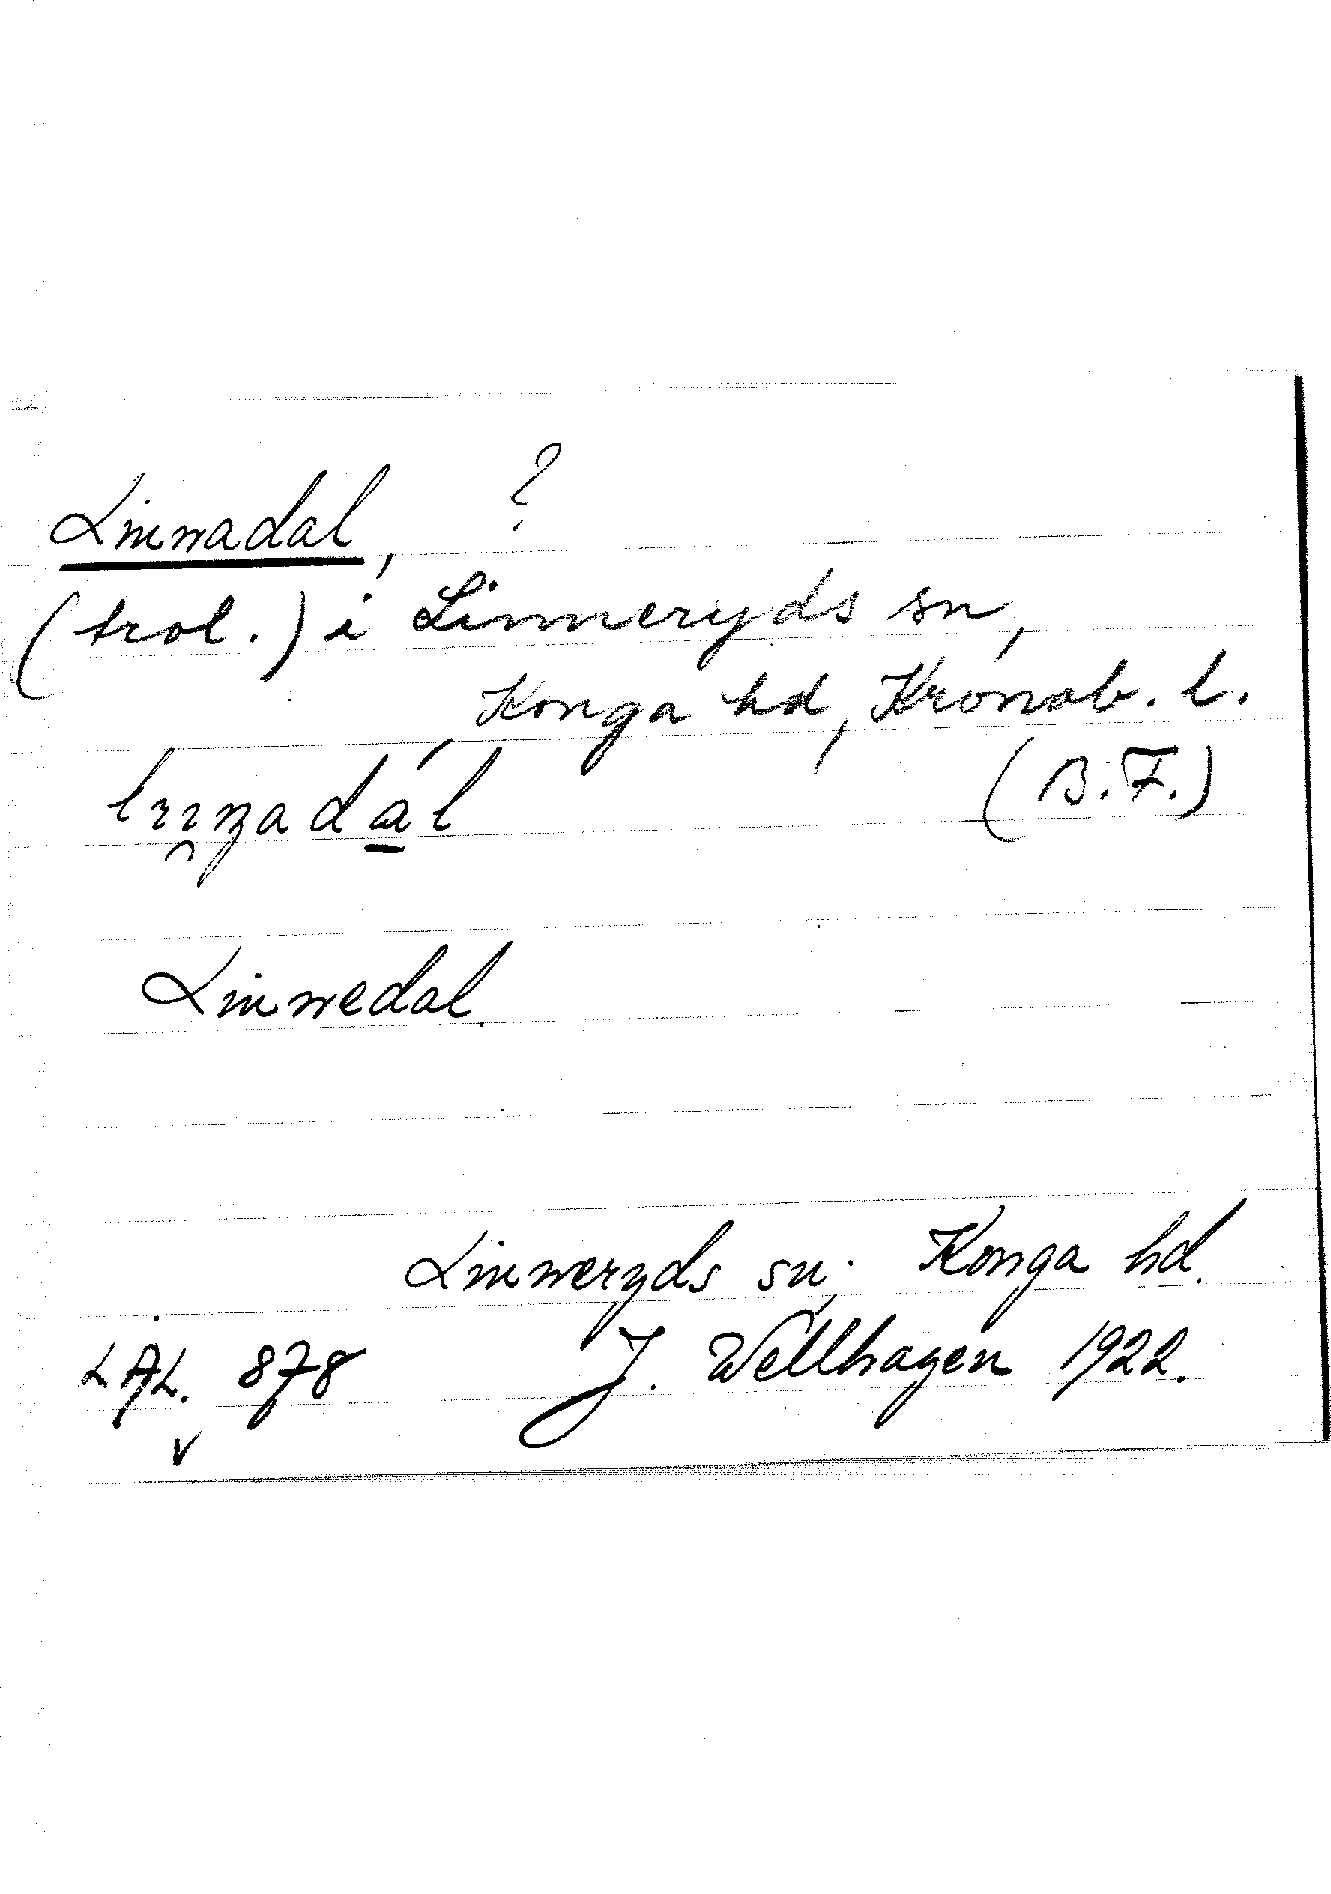 Linnadal, ?
(trol.) i Linneryds sn,
Konga hd, Kronob. l.
(B.F.)
Linnedal.
Linneryds sn. Konga hd.
LAL. 878 J. Wellhagen 1922.
v